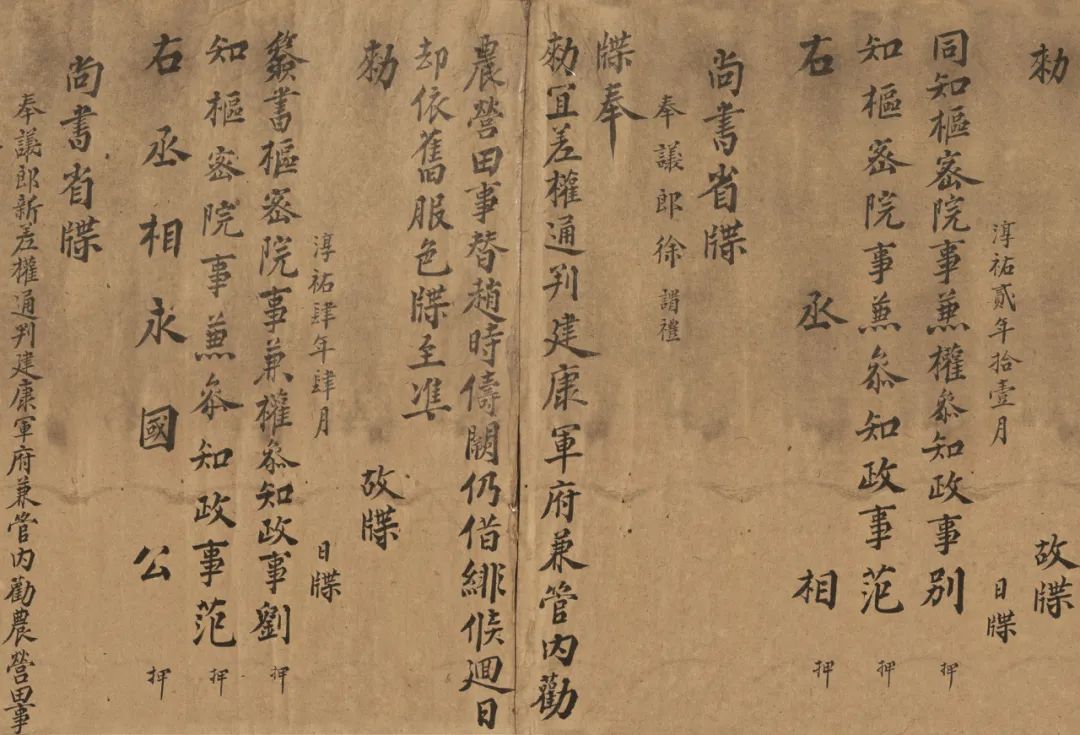 勑 故牒
淳祐貳年拾壹月 日牒
同知樞密院事兼權叅知政事別 押
知樞密院事兼叅知政事范 押
右丞相 押
尚書省牒
奉議郎徐謂禮
牒奉
勑宜差權通判建康軍府兼管內勸
農營田事替趙時儔闕仍借緋候廻日
却依舊服色牒至準
勑 故牒
淳祐肆年肆月 日牒
簽書樞密院事兼權叅知政事劉 押
知樞密院事兼叅知政事范 押
右丞相永國公 押
尚書省牒
奉議郎新差權通判建康軍府兼管內勸農營田事